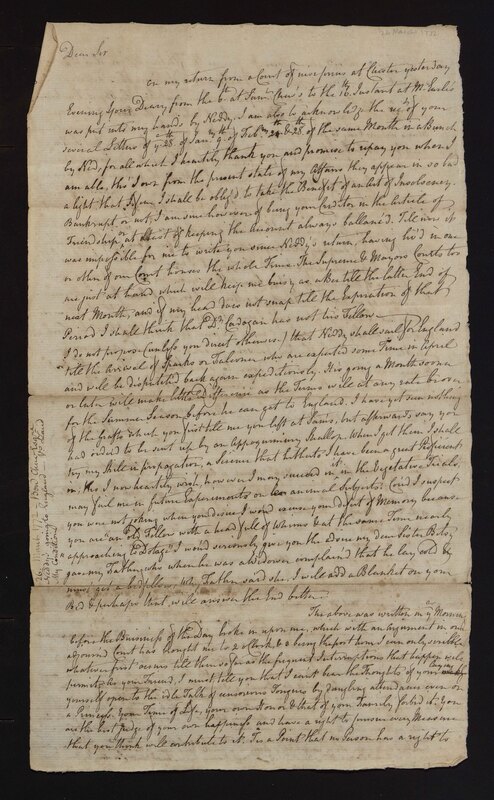 26 March 1772
Dear Sir
on my return from a Court of nisi prius at Chester yesterday
Evening Your Diary from the 6th at Saml Chew's to the 16 Instant at Mr Earle's
was put into my hands by Neddy. I am also to acknowledge the rect of your
several Letters of ye 28 of Jany 9th of Feby & 28 of the same Month in a Bunch
by Ned, for all which I heartily thank you and promise to repay you when I
am able, tho' I own from the present state of my Affairs they appear in so bad
a light that I fear I shall be oblig'd to take the Benefit of an Act of Insolvency.
Bankrupt or not, I am sure however of being your Creditor in the Article of
Friendship, or at least of keeping the Account always ballanc'd. Till now it
was impossible for me to write you since Neddy's return, having liv'd in one
or other of our Court houses the whole Time. The Supreme & Mayors Courts too
are just at hand which will keep me busy as a Bee till the latter End of
next Month, and if my head does not snap till the Expiration of that
Period I shall think that Dr. Cadogan has not his Fellow
I do not propose (unless you direct otherwise) that Neddy shall sail for England
till the arrival of Sparks or Falconer who are expected some Time in April
and will be dispatched back again expeditiously. His going a Month sooner
or later will make little Difference as the Terms will at any rate be over
for the Summer Season before he can get to England. I have yet seen nothing
of the Grafts which you first tell me you left at Sam's, but afterwards, say you
had order'd to be sent up by an Appoquinimy Shallop. When I get them I shall
try my skill in propagation, a Science that hitherto I have been a great Proficient
in; tho' I now heartily wish, however I may succeed in it in the Vegetative Trials,
may fail me in future Experiments on animal Subjects. Cou'd I suspect
you were not joking when you desire I would excuse your defect of Memory because
you are an old Fellow with a head full of whims & at the same Time nearly
approaching to Dotage I would seriously give you the advice my dear Sister Betsy
gave my Father, who when he was a Widower complained that he lay cold & 
must get a bedfellow, why Father said she, I will add a Blanket on your
Bed & perhaps that will answer the End better.
The above was written in ye Morning
before the Business of the Day broke in upon me, which with an Argument in our
adjourn'd Court has brought me to 2 oClock & being the post hour I can only scribble
whatever first occurs till then so far as the frequent Interruptions that happen will
permit. As your Friend, I must tell you that I can't bear the Thoughts of your laying
yourself open to the idle Talk of censorious Tongues by dangling attendance even on
a Princess. Your Time of Life, your own Honor & that of your Family, forbid it. You
are the best Judge of your own happiness and have a right to pursue every Measure
that you think will contribute to it. Tis a Point that no Person has a right to